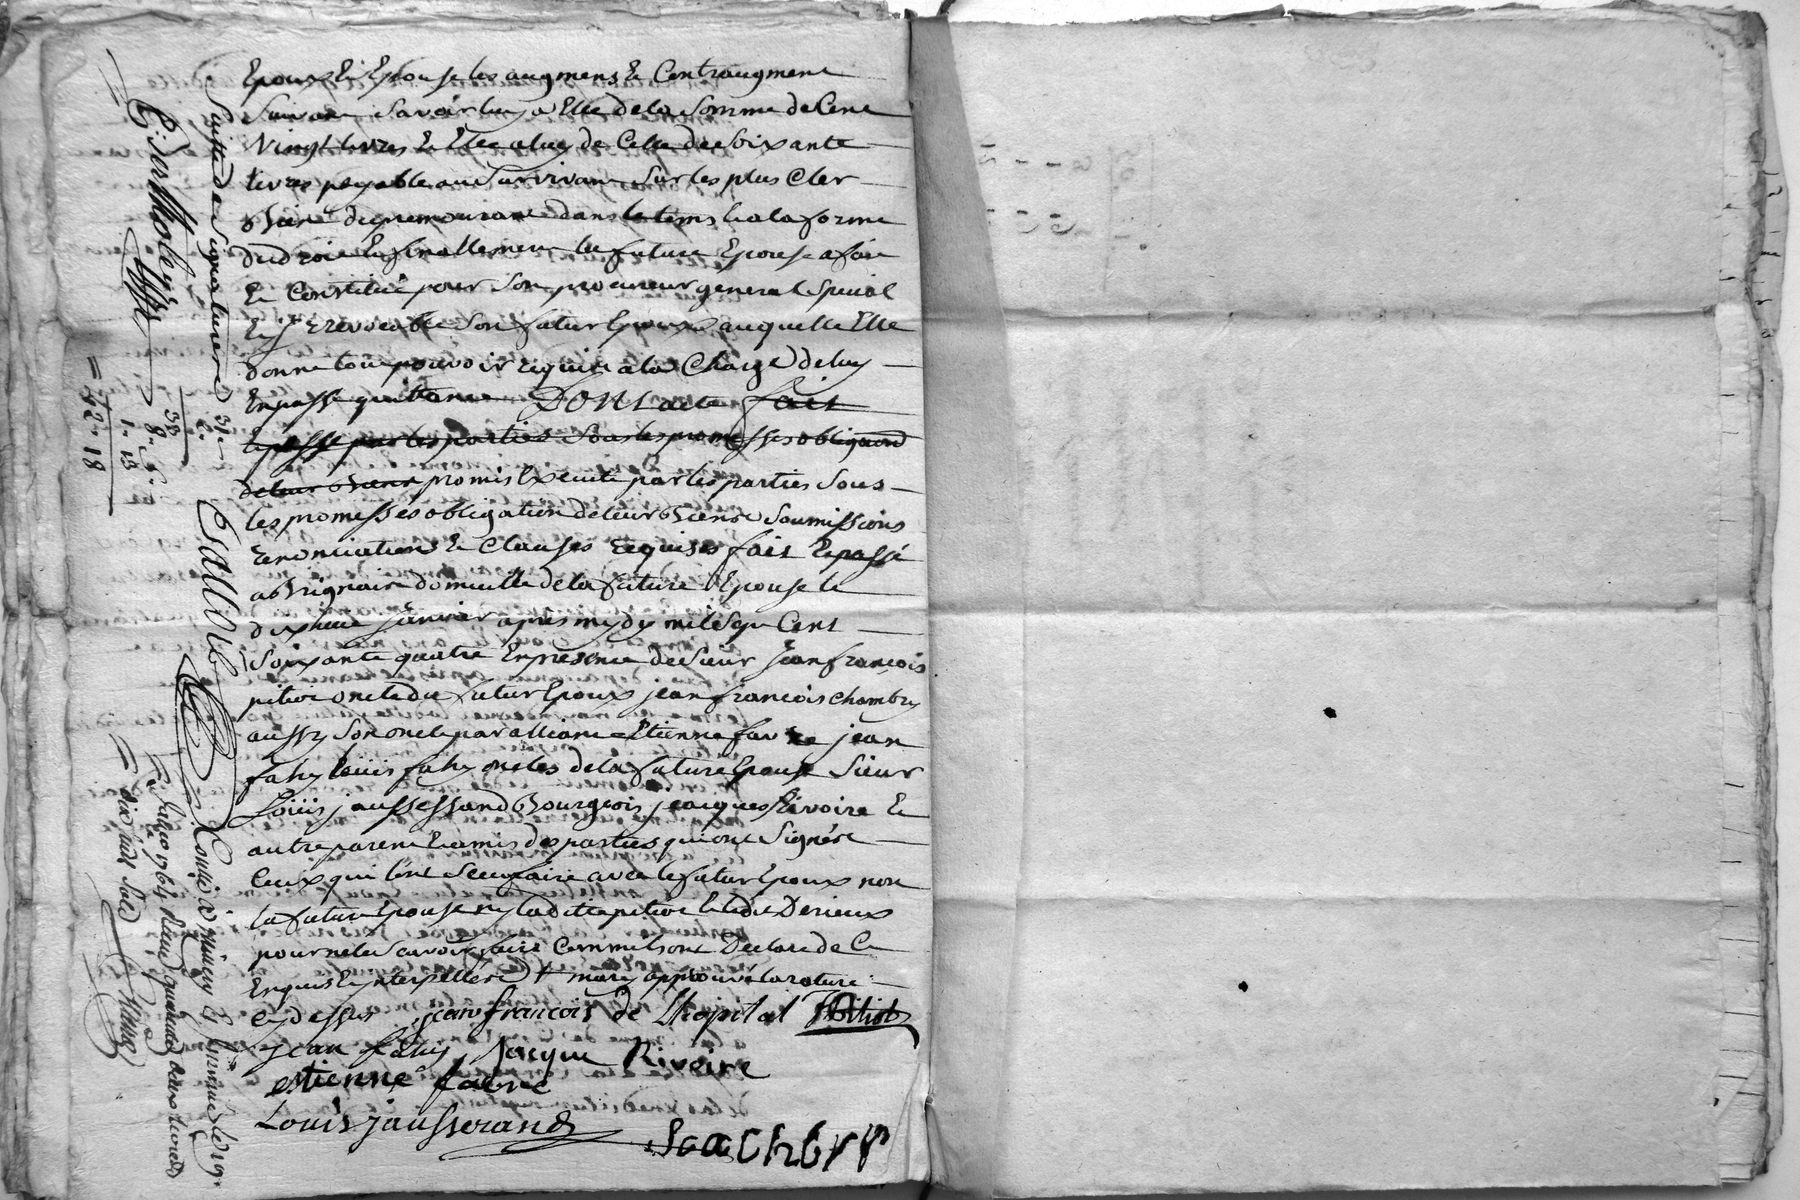 Epoux Et Epouse les augmens Et Contraugment
Suivant Savoir luy a Elle de la Somme de Cent
Vingt livres Et Elle a luy de Celle de Soixante
livres payable au Survivant Sur les plus Cler
Biens du premourant dans le tems Et a la forme
du droit Et finallement la future Epouse a fait
Et Constitué pour Son procureur general Special
Et jrrevocable Son futur Epoux auquelle Elle
donne tout pouvoir requis a la Charge de luy
En passe quittance Dont acte fait
Et passé par les parties Sous les promesses obligaond
de leur Biens promis Execute par les parties Sous
les promesses obligation de leur Biens Soumissions
Renonciations Et Clauses requises fait Et passé
a Brignais domicille de la future Epouse le
dix huit janvier apres mydy mil Sept Cent
Soixante quatre En presence de Sieur jean francois
pitiot oncle du futur Epoux jean francois chambry
aussy Son oncle par alliance Etienne favre jean
fahy loüis fahy oncles de la future Epouse Sieur
Loüis jausserand Bourgeois jacques Rivoire Et
autre parent Et amis des parties qui ont Signés
Ceux qui l'ont Sceu faire avec le futur Epoux non
la future Epouse ny ladite pitiot Et ledit Derieux
pour ne le Scavoir faire Comme ils ont Declare de Ce
Enquis Et jnterpelles mary approuvé la rature
cy dessus jean francois de Lhopital Pitiot
jean fahy Jacque Rivoire
estienne fabre
Louis jausserand
Suitte des Signatures
31
2
33
8
1 - 13
= 42 - 18